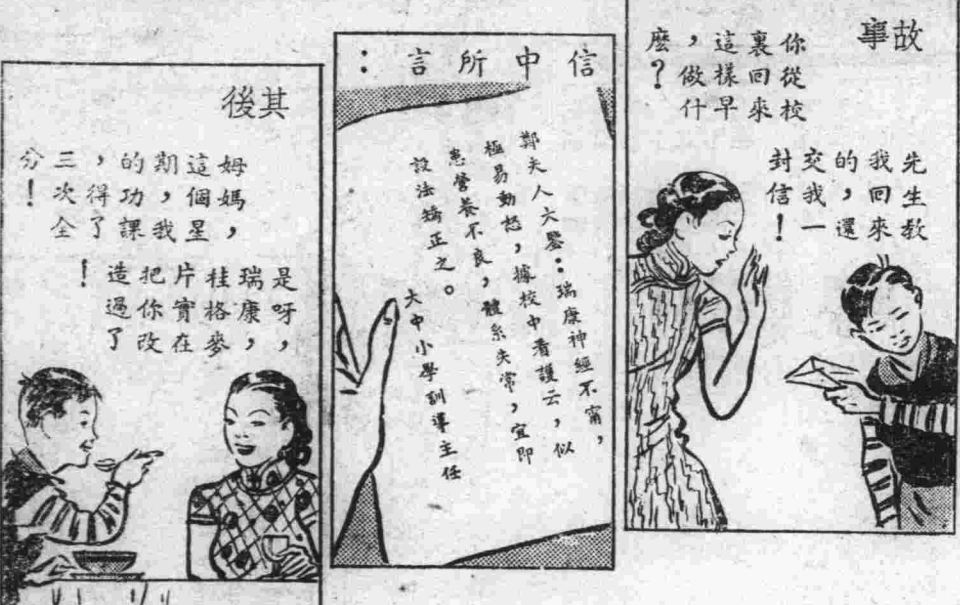 故事
你從校
裏回來
這樣早
，做什
麼？
先生教
我回來
的，還
交我一
封信！
信中所言：
鄭夫人大鑒：瑞康神經不甯，
極易動怒，據校中看護云，似
患營養不良，體系失常，宜即
設法矯正之。
大中小學訓導主任
其後
姆媽，
這個星
期，我
的功課
，得了
三次全
分！
是呀，
瑞康，
桂格麥
片實在
把你改
造過了
！